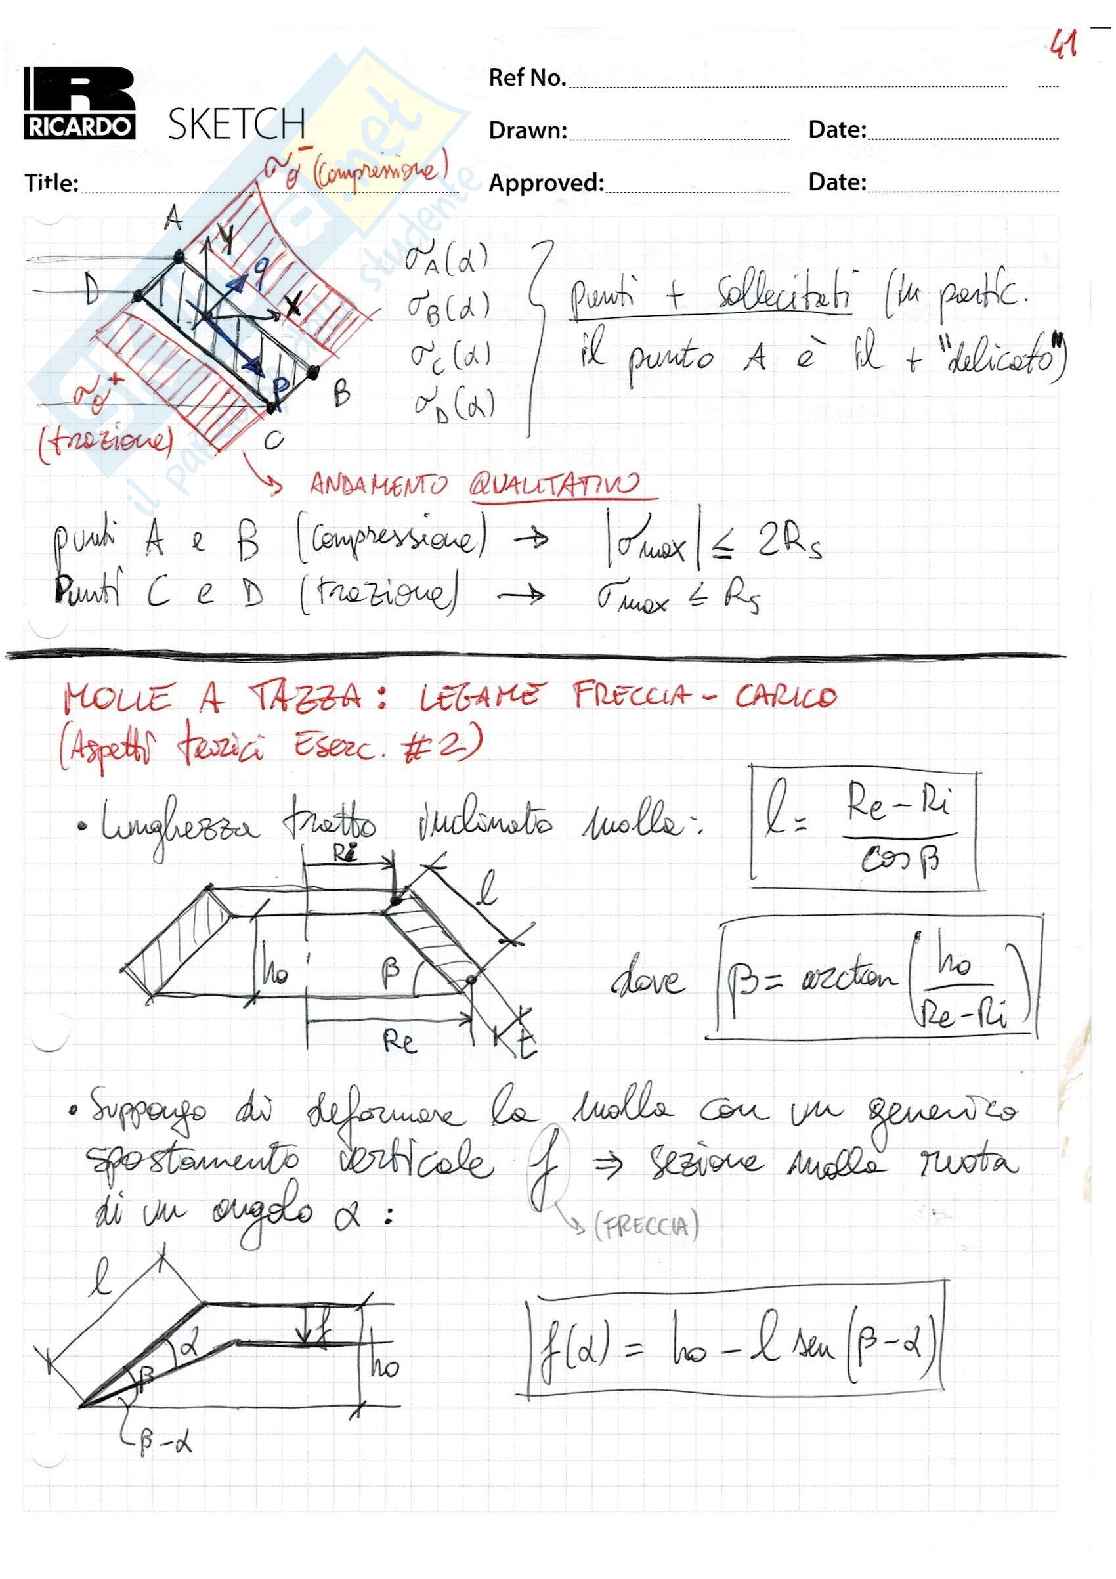 41
R
RICARDO
SKETCH
Ref No.
Drawn: Date:
Title: Approved: Date:
σσ⁻ (compressione)
A
y
D
q
x
P
B
C
σσ⁺
(trazione)
σA(α)
σB(α)
σC(α)
σD(α)
punti + sollecitati (in partic.
il punto A è il + "delicato")
ANDAMENTO QUALITATIVO
punti A e B (compressione) → |σmax| ≤ 2Rs
Punti C e D (trazione) → σmax ≤ Rs
MOLLE A TAZZA: LEGAME FRECCIA - CARICO
(Aspetti teorici Eserc. #2)
• Lunghezza tratto inclinato molla: l = (Re - Ri) / cos β
Ri
l
ho
β
Re
t
dove β = arctan (ho / (Re - Ri))
• Suppongo di deformare la molla con un generico
spostamento verticale f ⇒ sezione molla ruota
di un angolo α :
(FRECCIA)
l
α
β
f
ho
β-α
f(α) = ho - l sen (β-α)
.net
studente
il